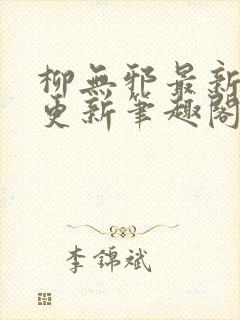 柳無邪最新
更新筆趣閣
李錦斌